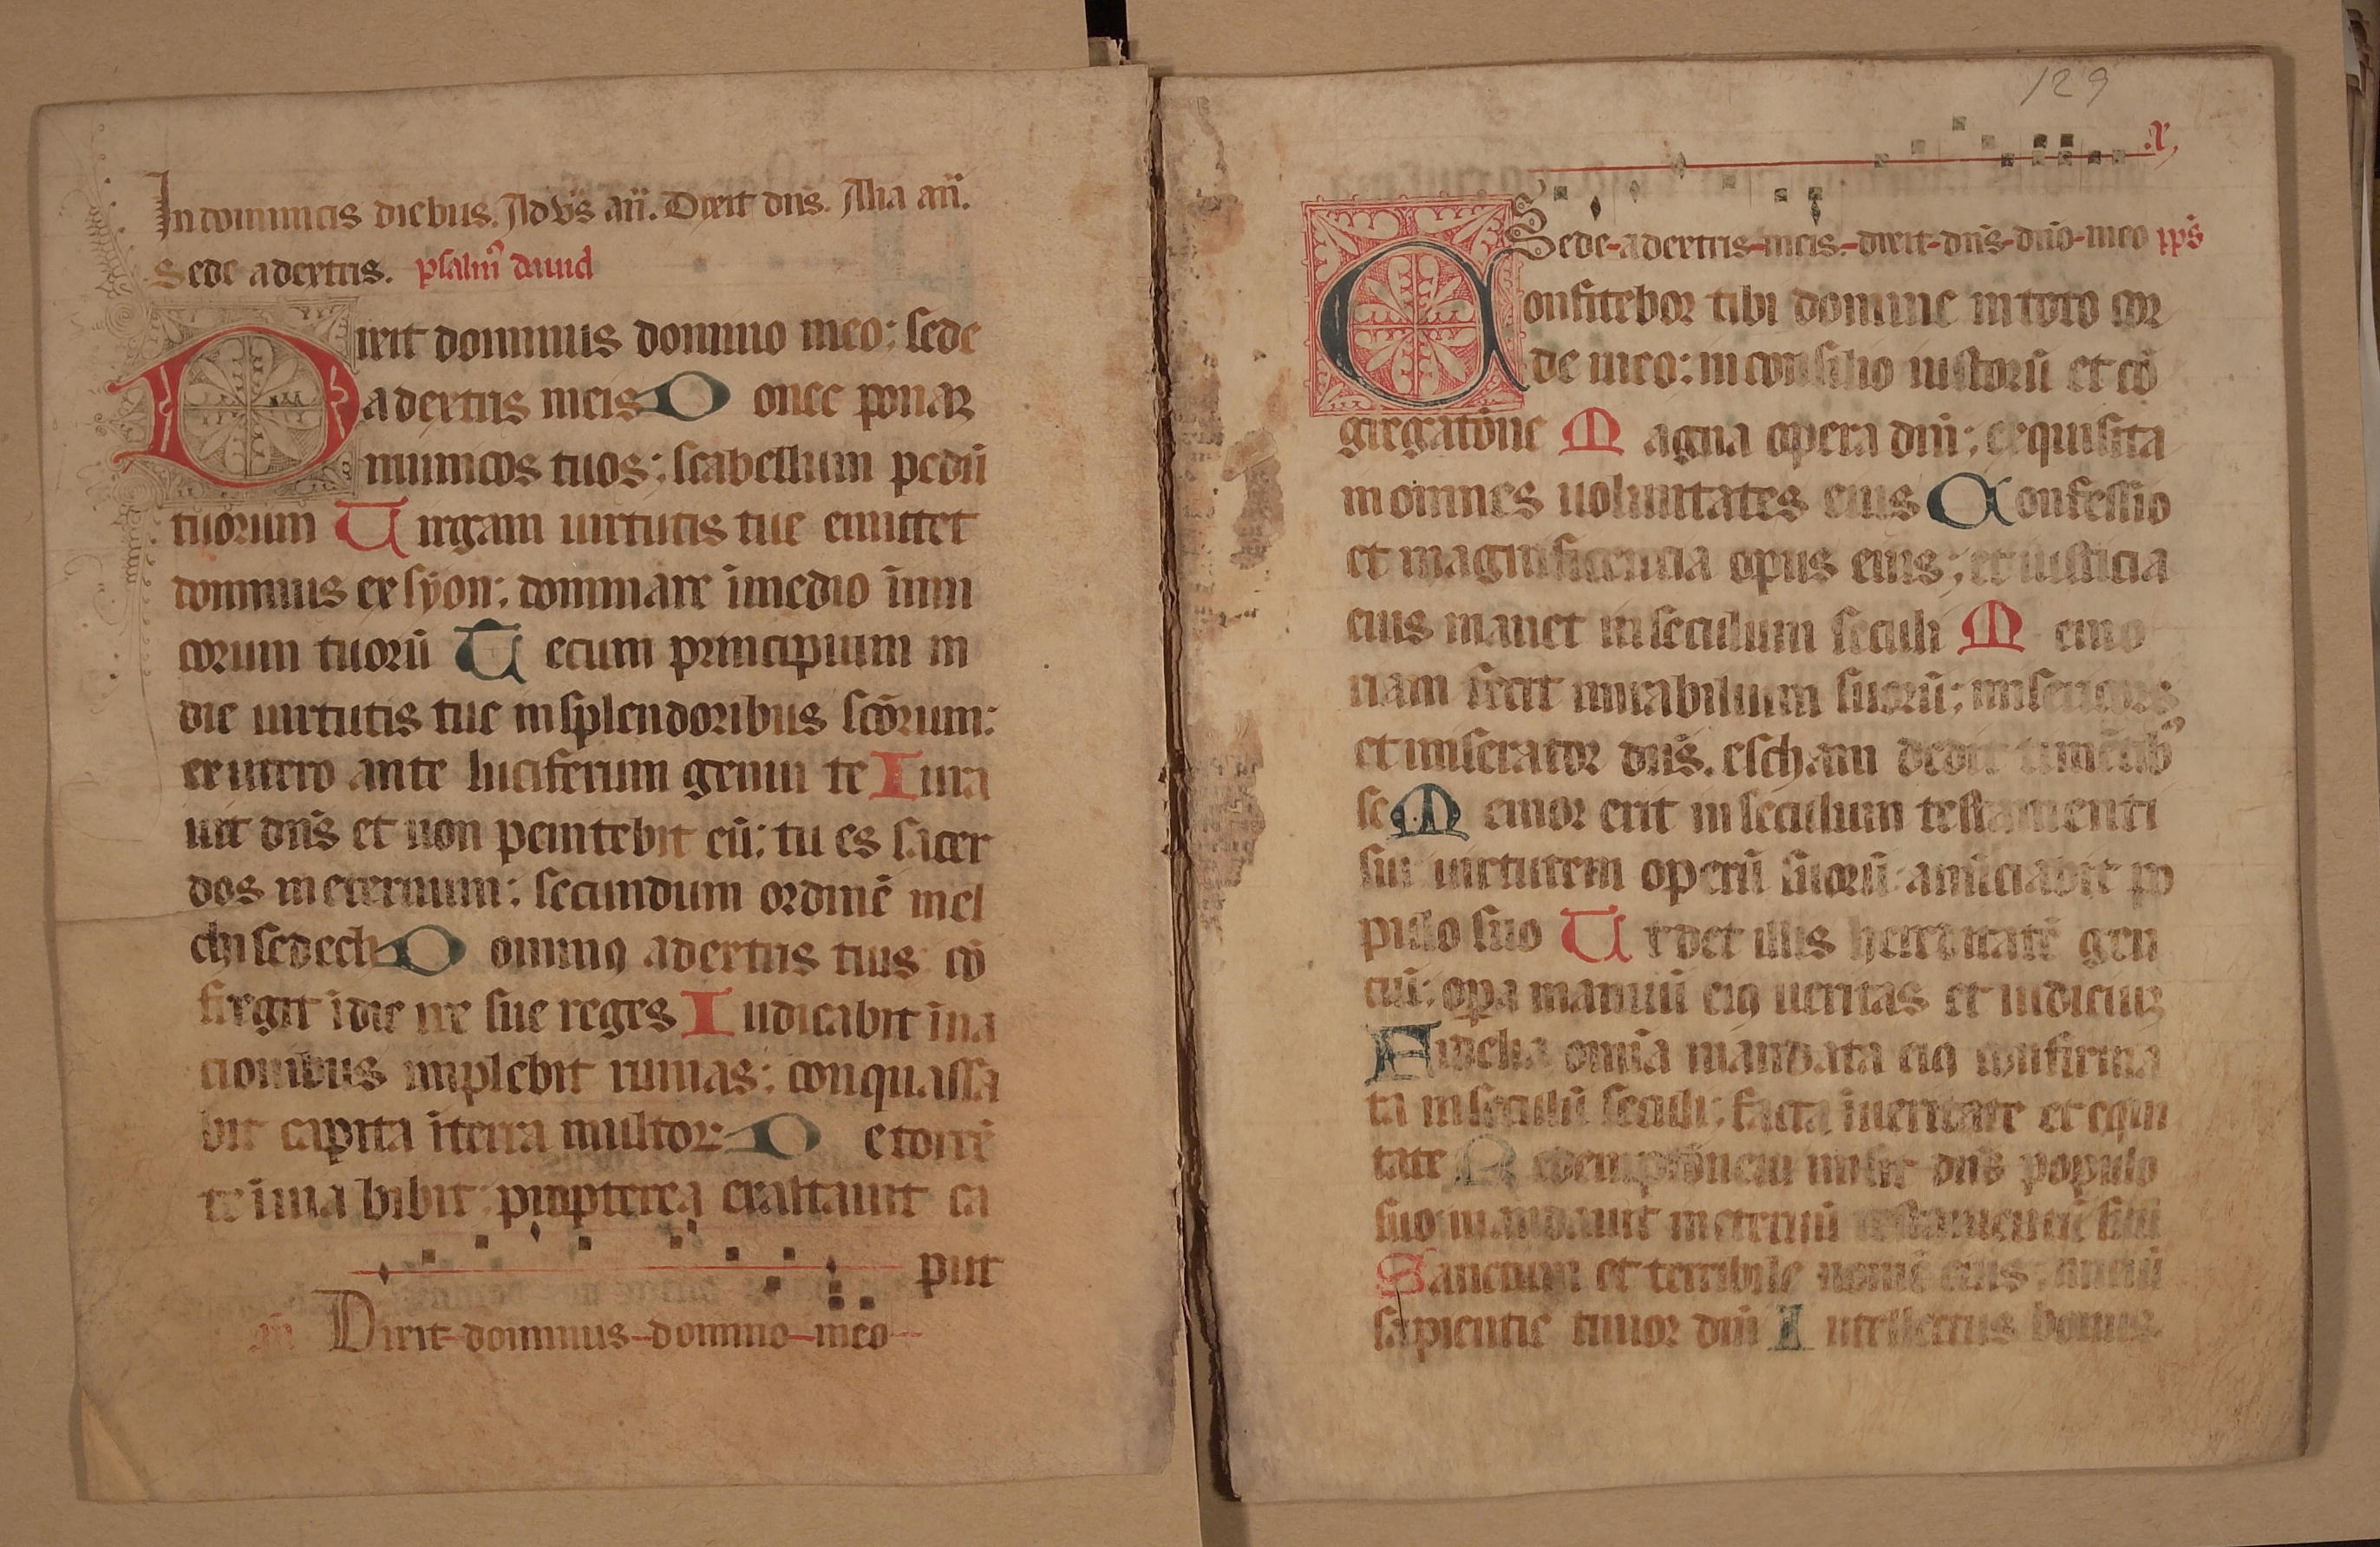 In dominicis diebus. Ad vs̄ añ. Dixit dn̄s. Alia añ.
Sede a dextris. psalm᷒ dauid
Dixit dominus domino meo: sede
a dextris meis Donec ponaꝫ
inimicos tuos: scabellum pedū
tuorum Uirgam uirtutis tue emittet
dominus ex syon: dominare ī medio inimi
corum tuorū Tecum principium in
die uirtutis tue in splendoribus scōrum:
ex utero ante luciferum genui te Iura
uit dn̄s et non penitebit eū: tu es sacer
dos in eternum: secundum ordinē mel
chisedech Dominꝰ a dextris tuis: cō
fregit ī die ire sue reges Iudicabit ī na
cionibus implebit ruinas: conquassa
bit capita ī terra multor̄ De torrē
te ī uia bibit: propterea exaltauit ca
put
añ Dixit dominus domino meo
129
.x.
Sede a dextris meis. dixit dn̄s dn̄o meo pp̄s
Confitebor tibi domine in toto cor
de meo: in consilio iustorū et cō
gregatōne Magna opera dn̄i: exquisita
in omnes uoluntates eius Confessio
et magnificencia opus eius: et iusticia
eius manet in seculum seculi Memo
riam fecit mirabilium suorū: misericors
et miserator dn̄s. escham dedit timētibꝰ
se Memor erit in seculum testamenti
sui uirtutem operū suorū anūciabit po
pulo suo Ut det illis hereditatē gen
ciū: opa manuū eiꝰ ueritas et iudiciuꝫ
Fidelia omīa mandata eiꝰ confirma
ta in seculū seculi: facta ī ueritate et equi
tate Redemptōnem misit dn̄s populo
suo: mandauit in eternū testamentū suū
Sanctum et terribile nomē eius: iniciū
sapientie timor dn̄i Intellectus bonus